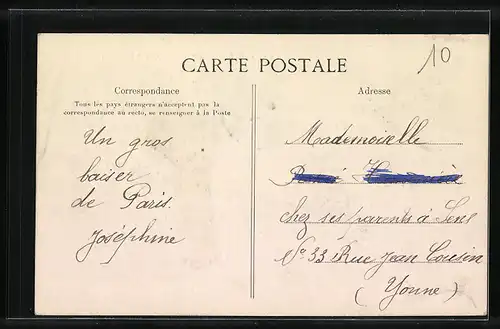 10
CARTE POSTALE
Correspondance
Tous les pays étrangers n'acceptent pas la
correspondance au recto, se renseigner à la Poste
Un gros
baiser
de Paris.
Joséphine
Adresse
Mademoiselle
chez ses parents à Sens
No 33 Rue Jean Cousin
(Yonne)